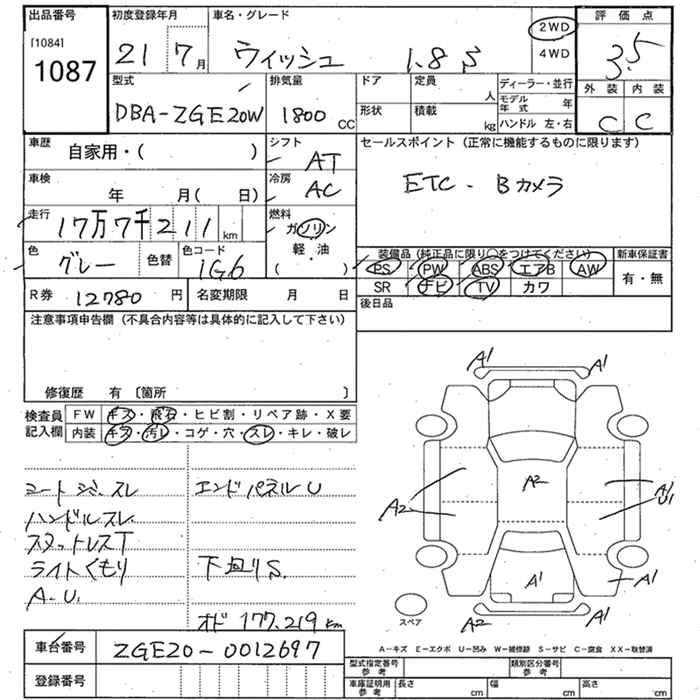 出品番号 初度登録年月 車名・グレード 評価点
[1084]
1087
21 7月 ウィッシュ 1.8 S 2WD 4WD 3.5
型式 排気量 ドア 定員 人 ディーラー・並行 外装 内装
DBA-ZGE20W 1800 CC 形状 積載 kg モデル年式 年
ハンドル 左・右 C C
車歴 自家用・( ) シフト AT セールスポイント (正常に機能するものに限ります)
車検 年 月( 日) 冷房 AC ETC・Bカメラ
走行 17万7千211 km 燃料 ガソリン
軽・油
( )
色 グレー 色替 色コード 1G6
装備品 (純正品に限り○をつけてください) 新車保証書
PS PW ABS エアB AW 有・無
SR ナビ TV カワ
R券 12780 円 名変期限 月 日 後日品
注意事項申告欄 (不具合内容等は具体的に記入して下さい)
修復歴 有 〔箇所 〕
検査員記入欄 FW キズ・飛石・ヒビ割・リペア跡・X要
内装 キズ・汚レ・コゲ・穴・スレ・キレ・破レ
シートシミ.スレ エンドパネルU
ハンドルスレ
スタットレスT
ライトくもり 下回りS.
A.U.
オド 177.219km
A1 A1
A1
A2 A2 A1 U1
A1 A1
A2 A1
スペア
A-キズ E-エクボ U-凹み W-補修跡 S-サビ C-腐食 XX-取替済
車台番号 ZGE20-0012697
型式指定番号 参考 類別区分番号 参考
登録番号 車庫証明用 参考 長さ cm 幅 cm 高さ cm